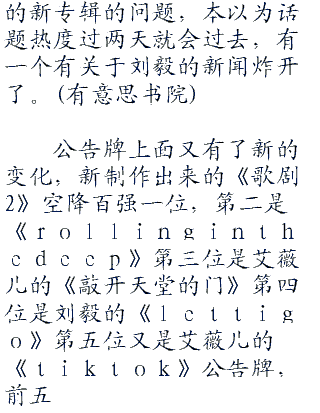 的新专辑的问题，本以为话
题热度过两天就会过去，有
一个有关于刘毅的新闻炸开
了。(有意思书院)
公告牌上面又有了新的
变化，新制作出来的《歌剧
2》空降百强一位，第二是
《ｒｏｌｌｉｎｇｉｎｔｈ
ｅｄｅｅｐ》第三位是艾薇
儿的《敲开天堂的门》第四
位是刘毅的《ｌｅｔｔｉｇ
ｏ》第五位又是艾薇儿的
《ｔｉｋｔｏｋ》公告牌，
前五